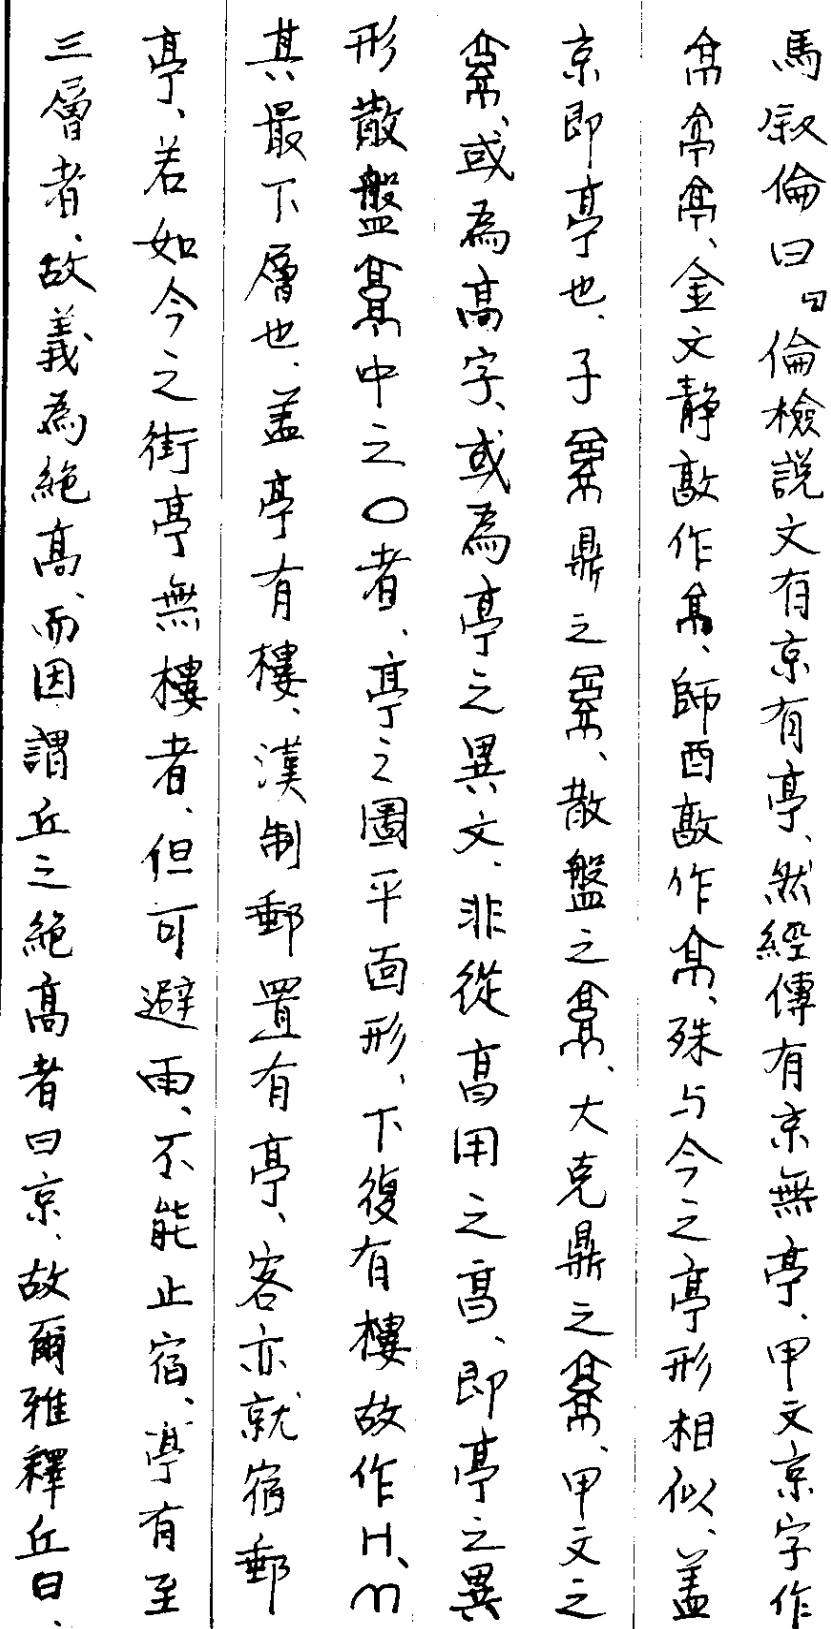 馬叙倫曰曰倫檢説文有京有亭、然經傳有京無亭、甲文京字作
、金文靜敦作、師酉敦作、殊与今之亭形相似、盖
京即亭也、子鼎之、散盤之、大克鼎之、甲文之
、或為高字、或為亭之異文、非從高用之高、即亭之異
形散盤中之〇者、亭之圖平面形、下復有樓故作H、
其最下層也、盖亭有樓、漢制郵置有亭、客亦就宿郵
亭、若如今之街亭無樓者、但可避雨、不能止宿、亭有至
三層者、故義為絶高、而因謂丘之絶高者曰京、故爾雅釋丘曰、